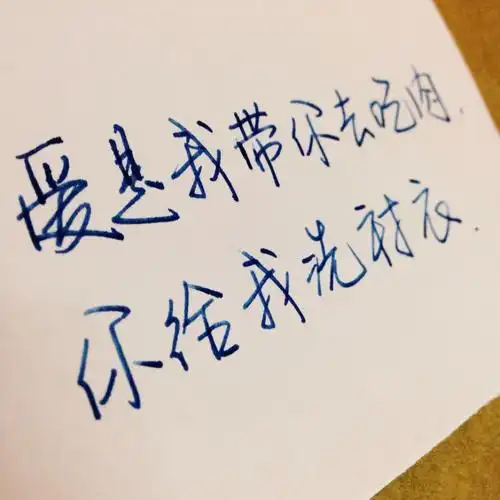 爱是我带你去吃肉.
你给我洗衬衣.